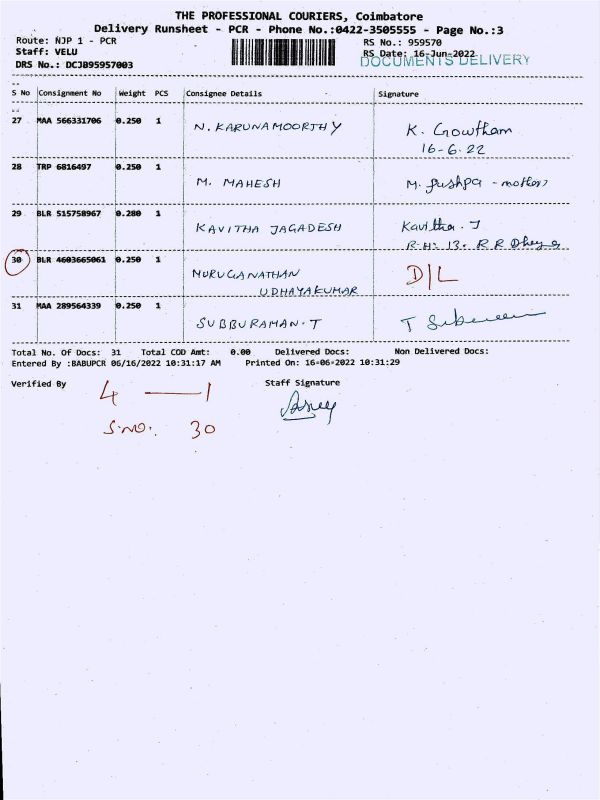 THE PROFESSIONAL COURIERS, Coimbatore
Delivery Runsheet - PCR - Phone No.:0422-3505555 - Page No.:3
Route: NJP 1 - PCR RS No.: 959570
Staff: VELU RS Date: 16-Jun-2022
DRS No.: DCJB95957003 DOCUMENTS DELIVERY
S No Consignment No Weight PCS Consignee Details Signature
27 MAA 566331706 0.250 1 N. KARUNAMOORTHY K. Gowtham
16-6-22
28 TRP 6816497 0.250 1 M. MAHESH M. Pushpa - mother
29 BLR 515758967 0.280 1 KAVITHA JAGADESH Kavitha. J
R.H: 13. R R
30 BLR 4603665061 0.250 1 MURUGANATHAN D/L
UDHAYAKUMAR
31 MAA 289564339 0.250 1 SUBBURAMAN.T T
Total No. Of Docs: 31 Total COD Amt: 0.00 Delivered Docs: Non Delivered Docs:
Entered By :BABUPCR 06/16/2022 10:31:17 AM Printed On: 16-06-2022 10:31:29
Verified By Staff Signature
4 — 1
S.NO. 30